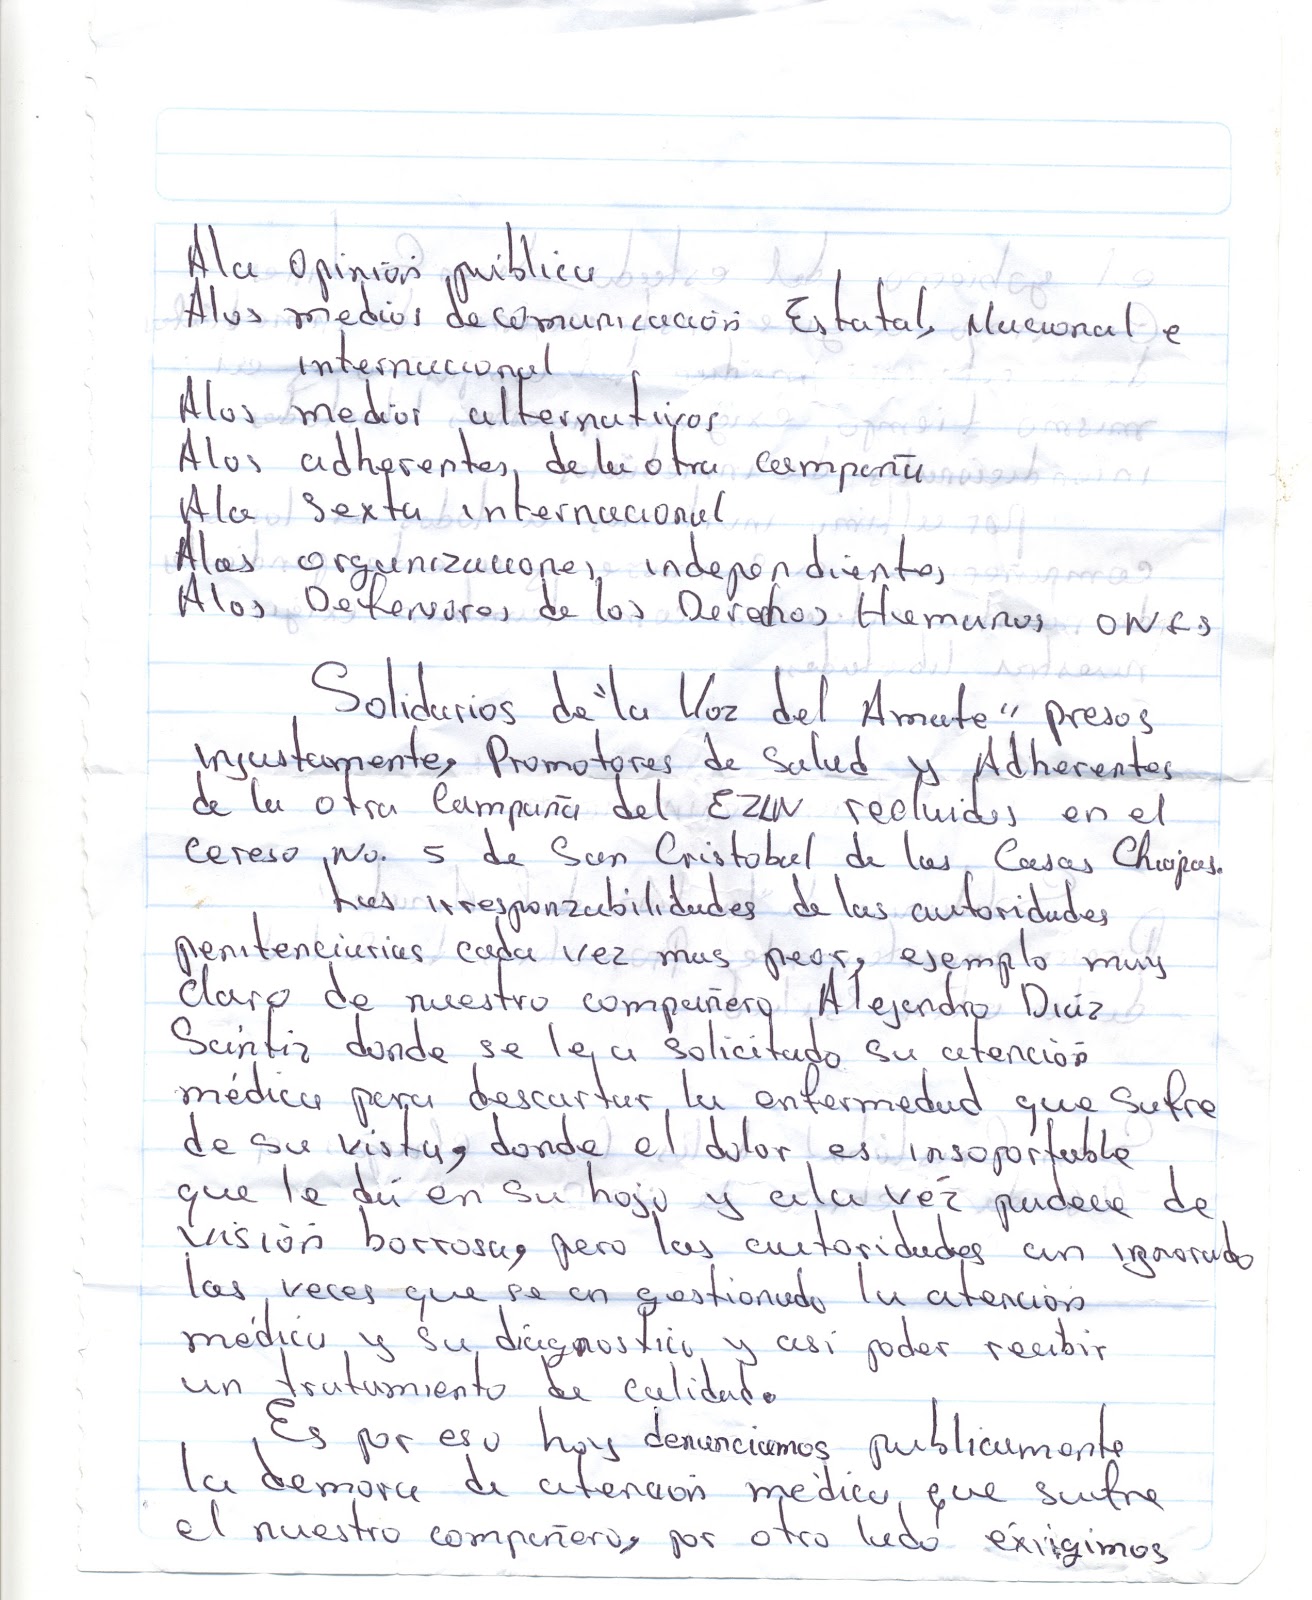 Ala Opinión pública
Alos medios de comunicación Estatal, Nacional e
internacional
Alos medios alternativos
Alos adherentes de la otra campaña
Ala Sexta internacional
Alas organizaciones independientes
Alos Defensores de los Derechos Humanos ONGs
Solidarios de "la Voz del Amate" presos
injustamente, Promotores de Salud y Adherentes
de la otra Campaña del EZLN recluidos en el
cereso No. 5 de San Cristobal de las Casas Chiapas.
Las irresponzabilidades de las autoridades
penitenciarias cada vez mas peor, ejemplo muy
claro de nuestro compañero Alejandro Diáz
Sántiz donde se le a solicitado su atención
médica para descartar la enfermedad que sufre
de su vista, donde el dolor es insoportable
que le dá en su hojo y ala véz padece de
visión borrosa, pero las autoridades an ignorado
las veces que se an gestionado la atención
médica y su diágnostico y así poder recibir
un tratamiento de calidad.
Es por eso hoy denunciamos publicamente
la demora de atención médica que sufre
el nuestro compañero, por otro lado exiigimos